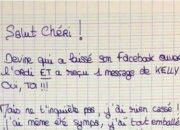 Salut Chéri !
Devine qui a laissé son facebook ouvert
l'ordi ET a reçu 1 message de KELLY
Oui, TOI !!!
Mais ne t'inquiète pas j'ai rien cassé !
j'ai même été sympa, j'ai tout emballé